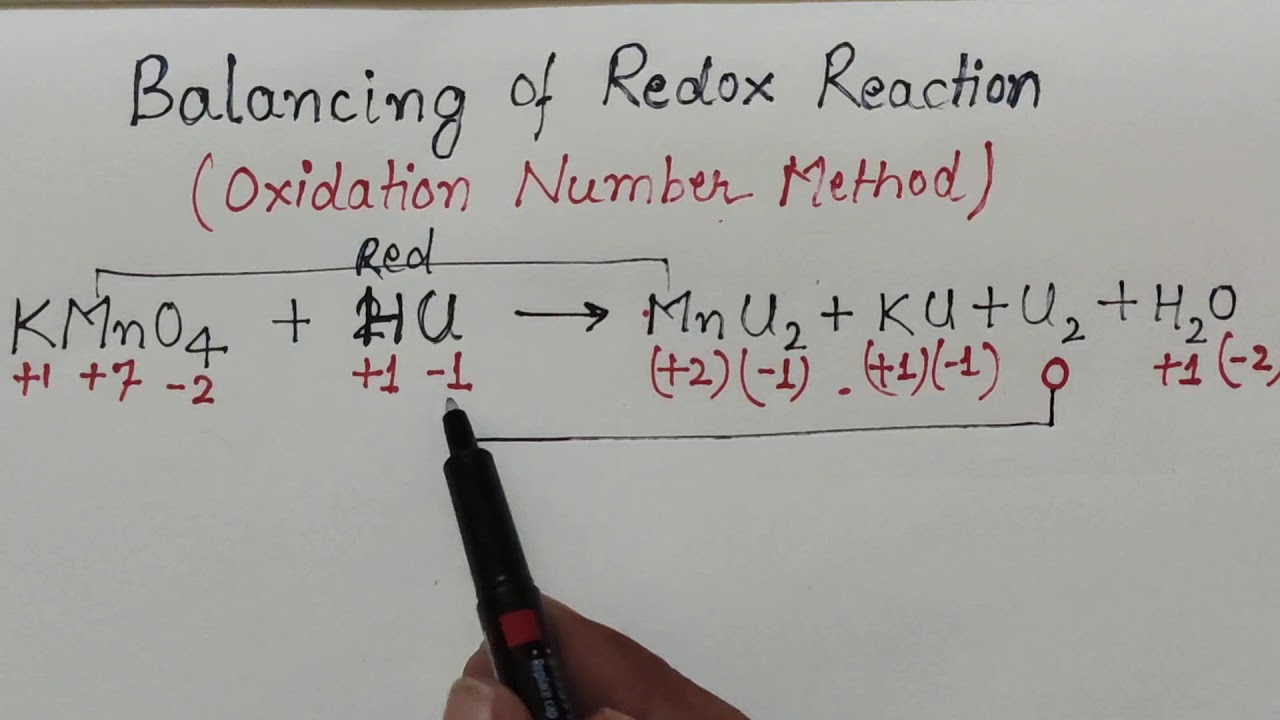 Balancing of Redox Reaction
(Oxidation Number Method)
Red
KMnO₄ + HCl → MnCl₂ + KCl + Cl₂ + H₂O
+1 +7 -2 +1 -1 (+2) (-1) . (+1) (-1) 0 +1 (-2)